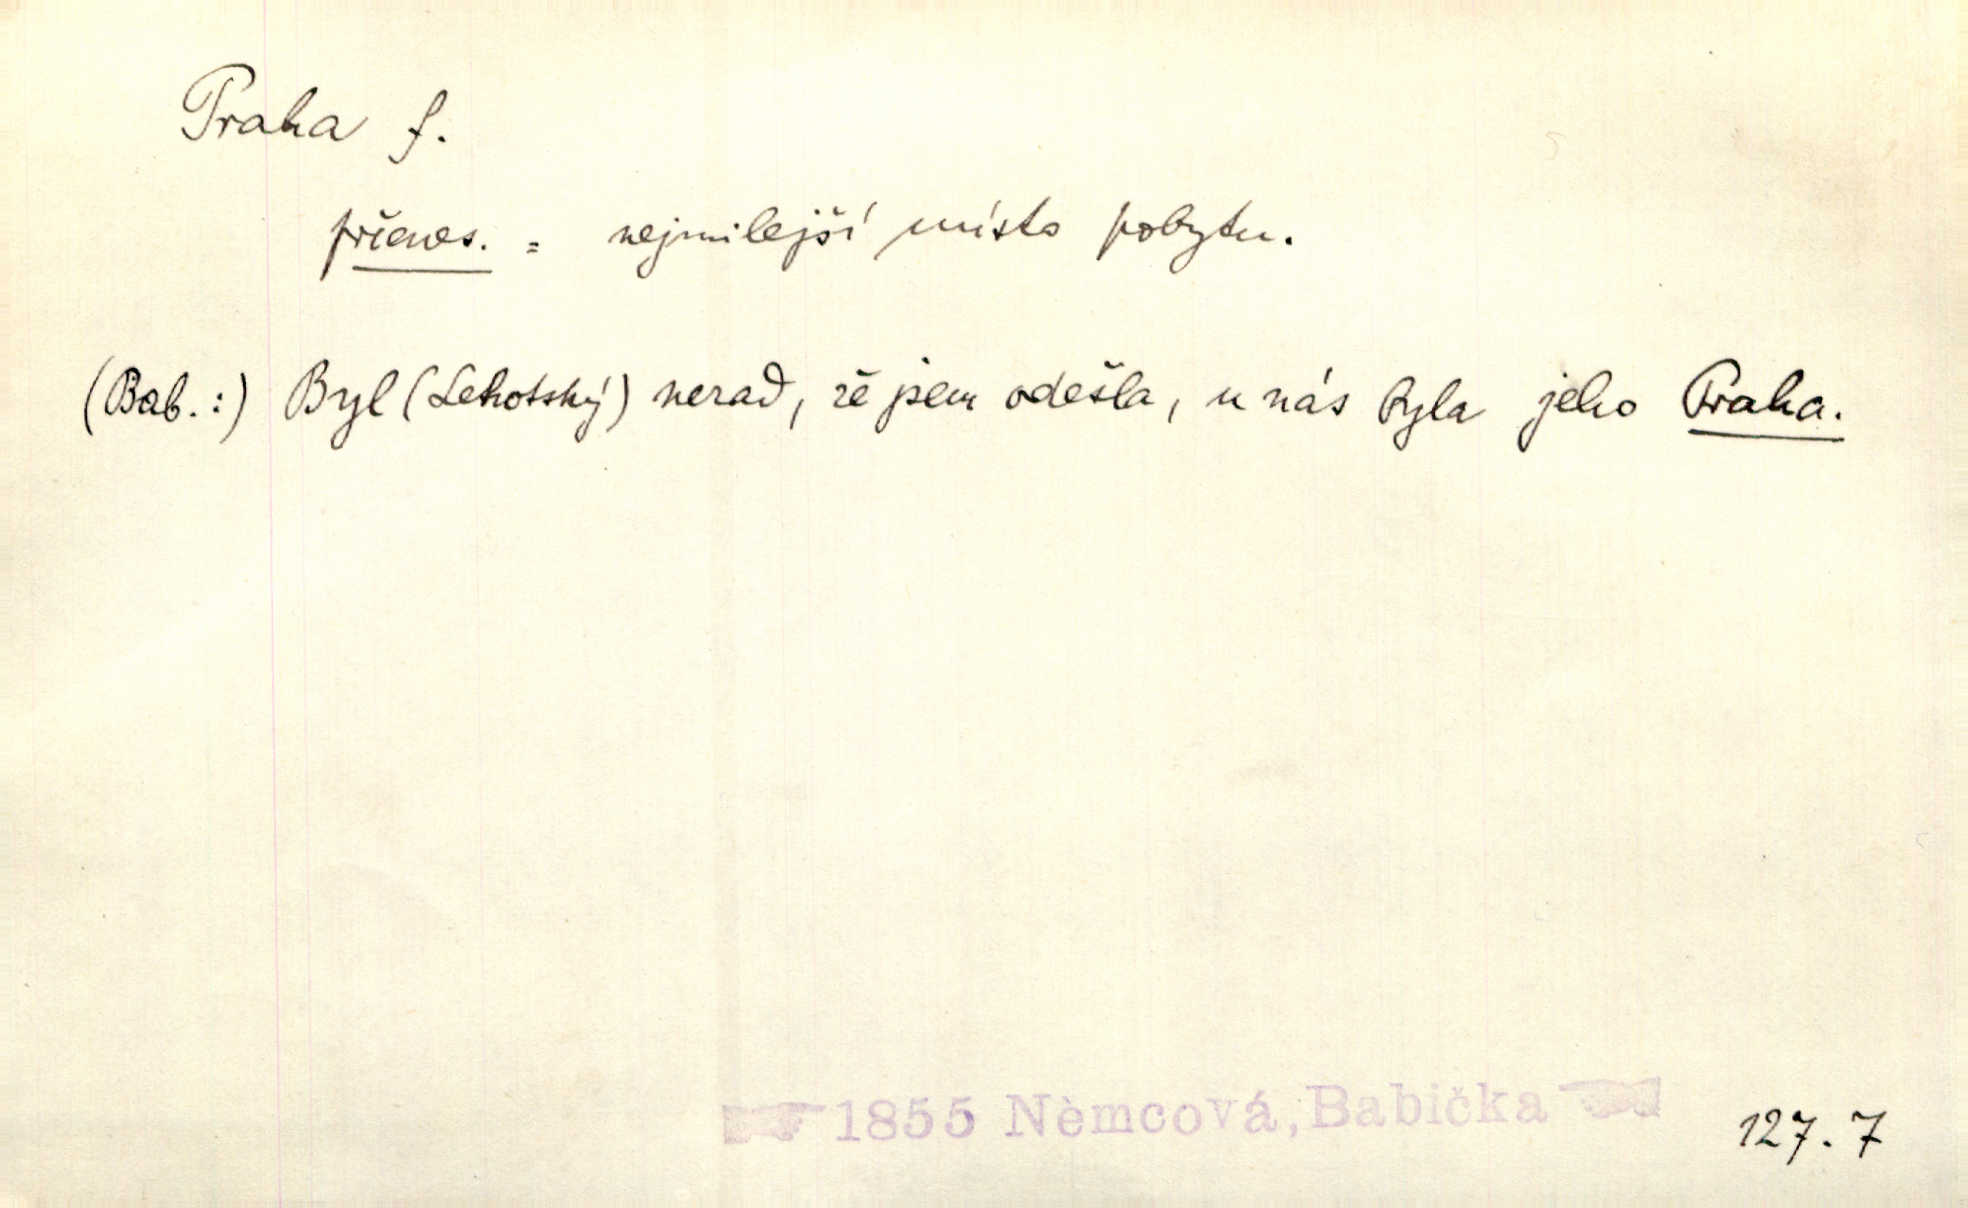 Praha f.
přenes. = nejmilejší místo pobytu.
(Bab.:) Byl (Lehotský) nerad, že jsem odešla, u nás byla jeho Praha.
1855 Němcová, Babička
127.7